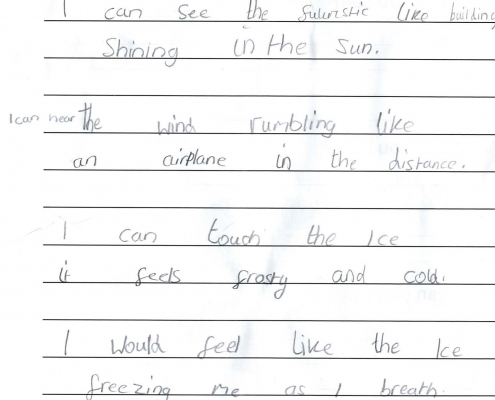 I can see the futuristic like building
Shining in the sun.
I can hear the wind rumbling like
an airplane in the distance.
I can touch the Ice
it feels frosty and cold.
I would feel like the Ice
freezing me as I breath.